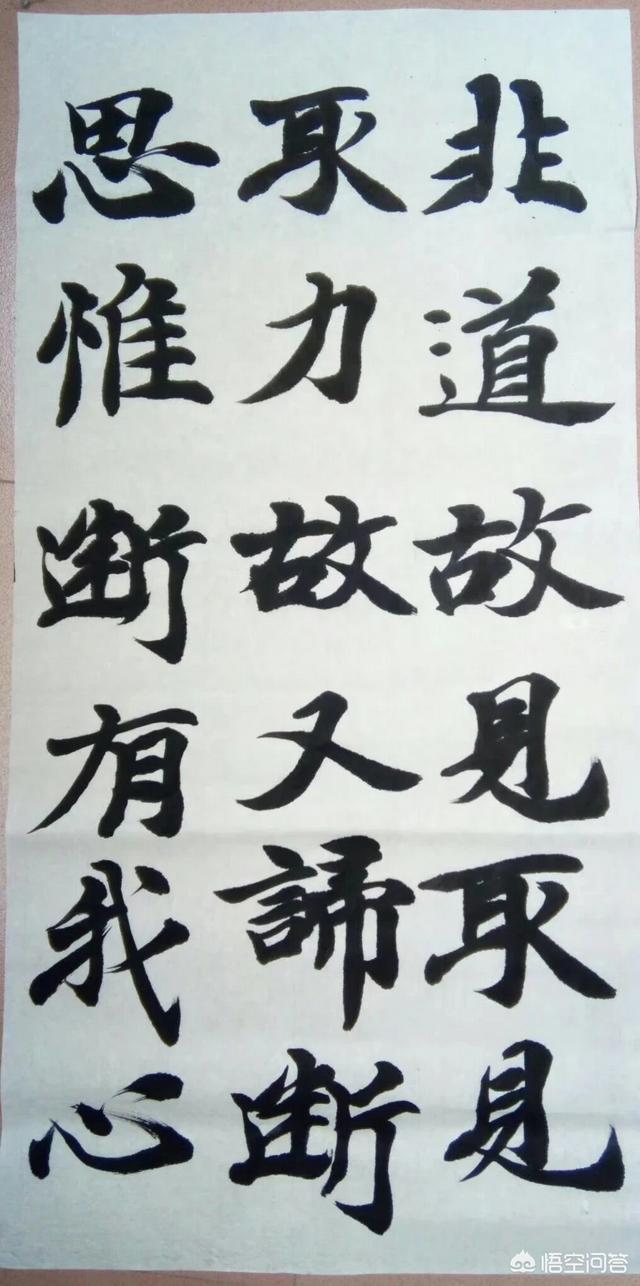 非道故見取見
取力故又諦断
思惟断有我心
悟空问答